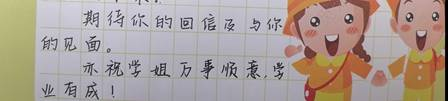 期待你的回信及与你
的见面。
亦祝学姐万事顺意,学
业有成!